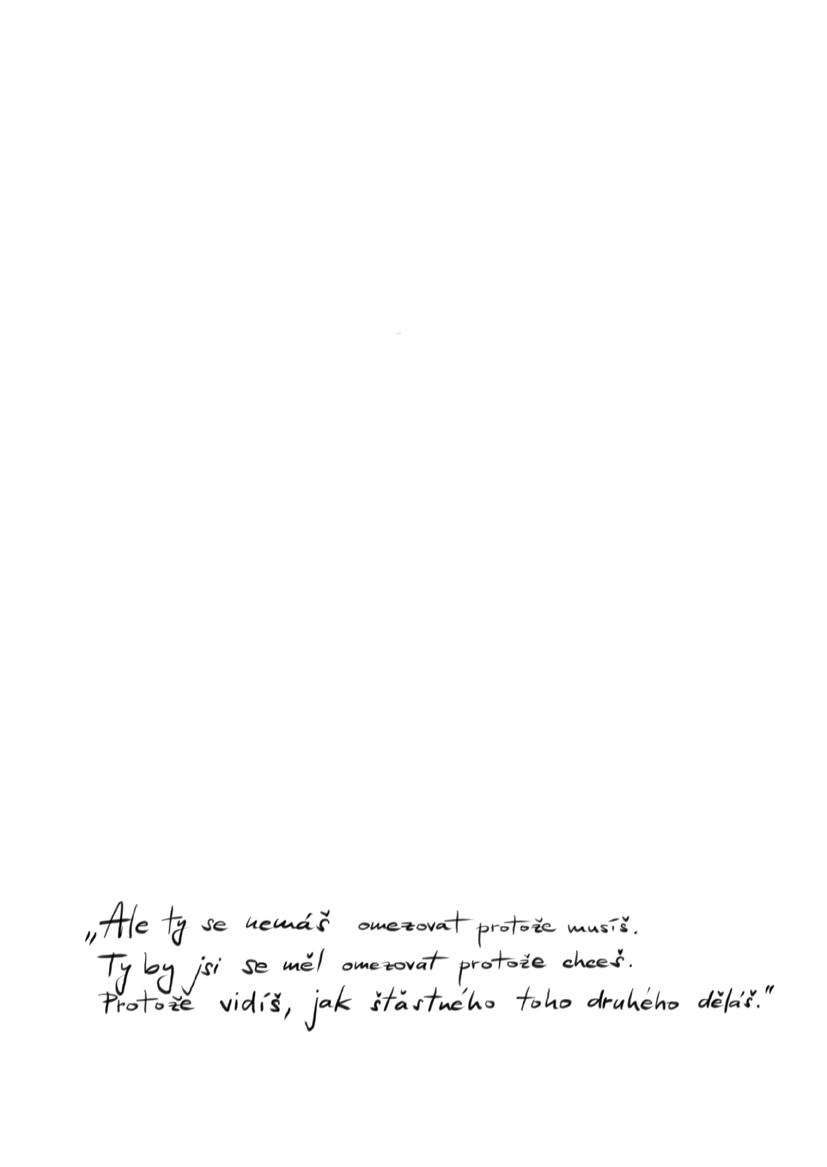 „Ale ty se nemáš omezovat protože musíš.
Ty by jsi se měl omezovat protože chceš.
Protože vidíš, jak šťastného toho druhého děláš."